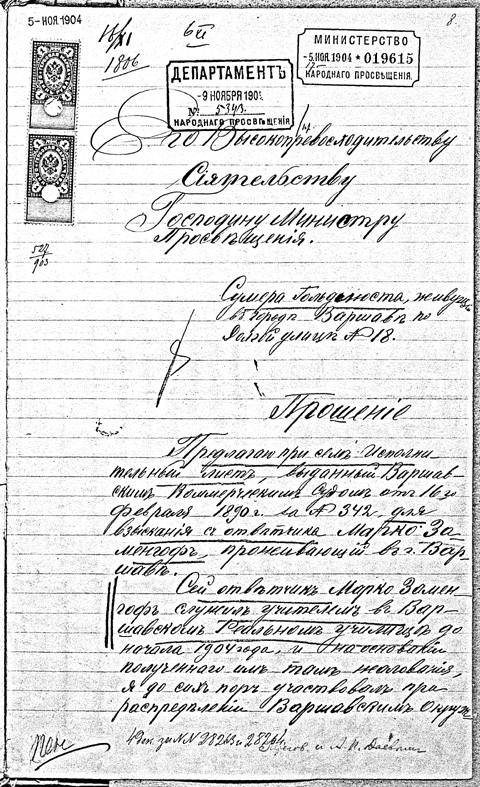 5-НОЯ.1904
8.
18/XI
1806
МИНИСТЕРСТВО
-5.НОЯ.1904 * 019615
НАРОДНАГО ПРОСВѢЩЕНІЯ.
ДЕПАРТАМЕНТЪ
-9 НОЯБРЯ 190
№. 5343.
НАРОДНАГО ПРОСВѢЩЕНІЯ
Его Высокопревосходительству
Сіятельству
Господину Министру
Просвѣщенія.
527
903
Сумера Гольдлюста, живущ
въ городѣ Варшавѣ по
улицѣ № 18.
Прошеніе
Предлагаю при семъ Исполни-
тельный листъ, выданный Варшав-
скимъ Коммерческимъ Судомъ отъ 16го
февраля 1890 г. за № 342, для
взысканія съ отвѣтчика Марко За-
менгофъ, проживающий въ г. Вар-
шавѣ.
Сей отвѣтчикъ Марко Замен-
гофъ служилъ учителемъ въ Вар-
шавскомъ Реальномъ училищѣ до
начала 1904 года, и на основаніи
полученнаго имъ тамъ жалованія,
я до сихъ поръ участвовалъ при
распредѣленіи Варшавскимъ Окруж-
49 за NN 28263 и 28264